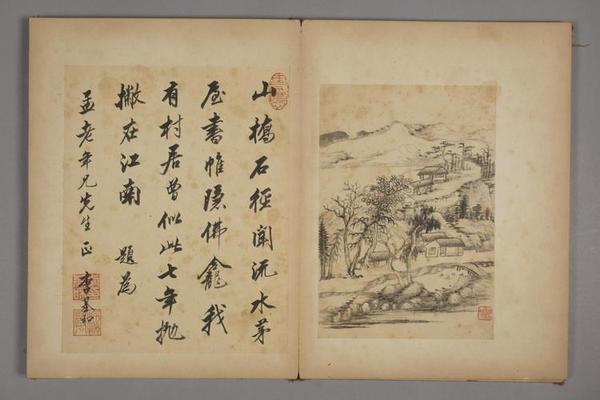 山橋石徑聞流水茅
屋書帷隱佛龕我
有村居曾似此七年抛
撇在江南　題為
孟老年兄先生正　李基和